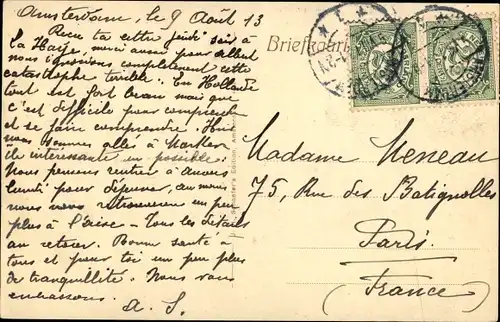 Amsterdam, le 9 Août 13
Reçu ta carte jeudi soir à
la Haye, merci
nous ignorions complètement cette
catastrophe terrible. En Hollande
tout est fort beau mais que
c'est difficile pour comprendre
et se faire comprendre. Hier
nous sommes allés à Marken
île intéressante
Nous pensons rentrer à Anvers
lundi pour déjeuner, au moins
nous nous retrouverons un peu
plus à l'aise - Tous les détails
au retour. Bonne santé à
tous et pour toi un peu plus
de tranquillité. Nous vous
embrassons.
A. S.
Briefkaart
Madame Meneau
75, Rue des Batignolles
Paris
(France)